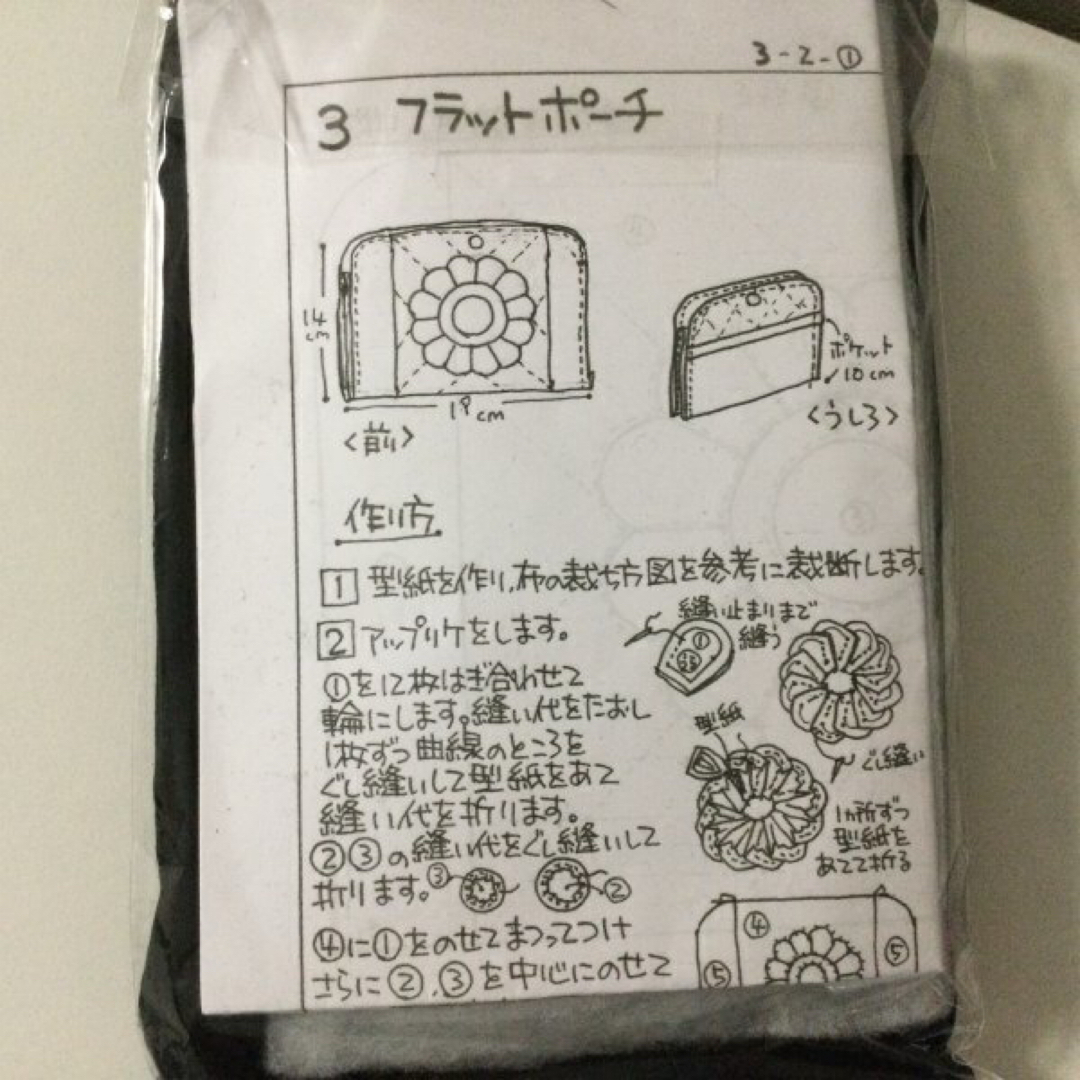 3-2-①
3 フラットポーチ
18cm
<前>
ポケット
10cm
<うしろ>
作り方
1 型紙を作り、布の裁ち方図を参考に裁断します。
2 アップリケをします。
①を12枚はぎ合わせて
輪にします。縫い代をたおし
1枚ずつ曲線のところを
ぐし縫いして型紙をあて
縫い代を折ります。
②③の縫い代をぐし縫いして
折ります。
③
②
④に①をのせてまつってつけ
さらに②、③を中心にのせて
縫い止まりまで
縫う
①
型紙
ぐし縫い
1ヵ所ずつ
型紙を
あてて折る
④
⑤
⑤